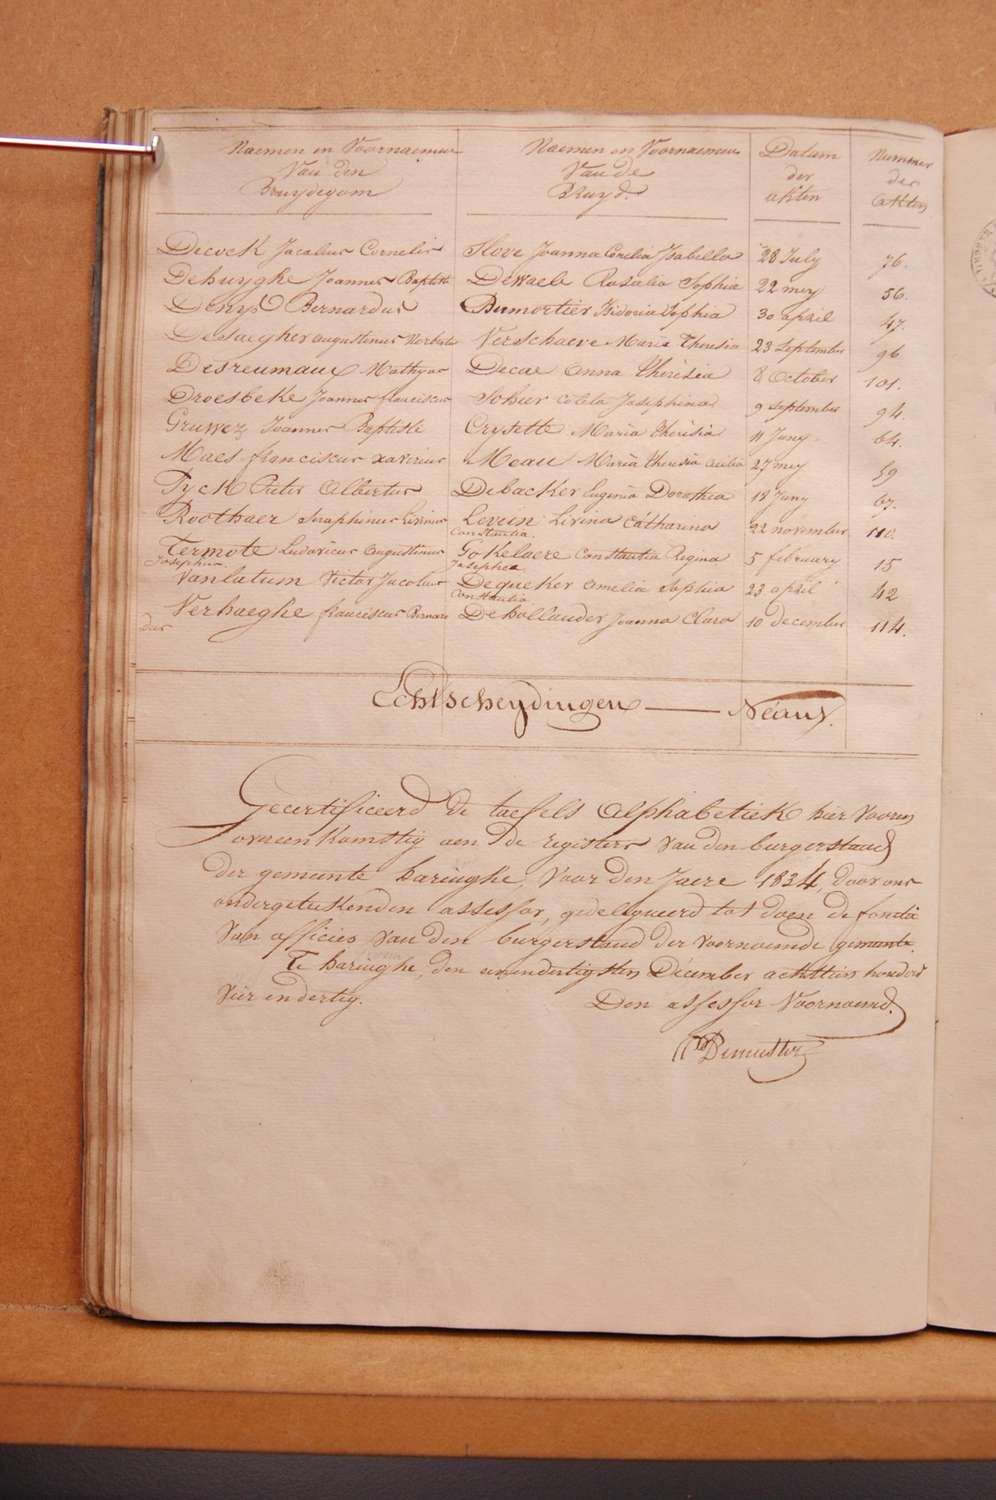 Naemen en Voornaemen Van den Bruydegom | Naemen en Voornaemen Van de Bruyd. | Datum der akten | Nummer der Akten
Decock Jacobus Cornelis | Hove Joanna Cornelia Isabella | 28 July | 76.
Dehuyghe Joannes Baptiste | Dewaele Rosalia Sophia | 22 mey | 56.
Denys Bernardus | Dumortier Isidoria Sophia | 30 april | 47.
Desaegher augustinus Norbertus | Verschaeve Maria Theresia | 23 September | 96
Desreumaux Mathyas | Decae Anna Theresia | 8 October | 101.
Droesbeke Joannes franciscus | Sohier coleta Josephina | 9 september | 94.
Gruwez Joannes Baptiste | Crysette Maria Theresia | 11 Juny | 64.
Maes franciscus xaverius | Meau Maria Theresia Cecilia | 27 mey | 59
Pyck Pieter Albertus | Debacker Eugenia Dorothea | 18 Juny | 67.
Roothaer Seraphinus Livinus | Levein Livina Catharina Constantia. | 22 november | 110.
Termote Ludovicus augustinus Josephus. | Gokelaere Constantia Regina Josephea | 5 february | 15
Vanlatum Victor Jacobus | Dequeker Amelia Sophia Constantia | 23 april | 42
Verhaeghe franciscus Bernardus | Dehollander Joanna Clara | 10 december | 114.
Echtscheydingen —— Néant.
Gecertificeerd de taefels Alphabetiek hier vooren
overeenkomstig aen de registers van den burgerstand
der gemeente haringhe, voor den Jaere 1834, door ons
ondergeteekenden assessor, gedelegueerd tot doen de fonctie
van officier van den burgerstand der voornoemde gemeente.
Te haringhe, den eenendertigsten December achttien honderd
vier en dertig. Den assessor Voornoemd.
Demeester